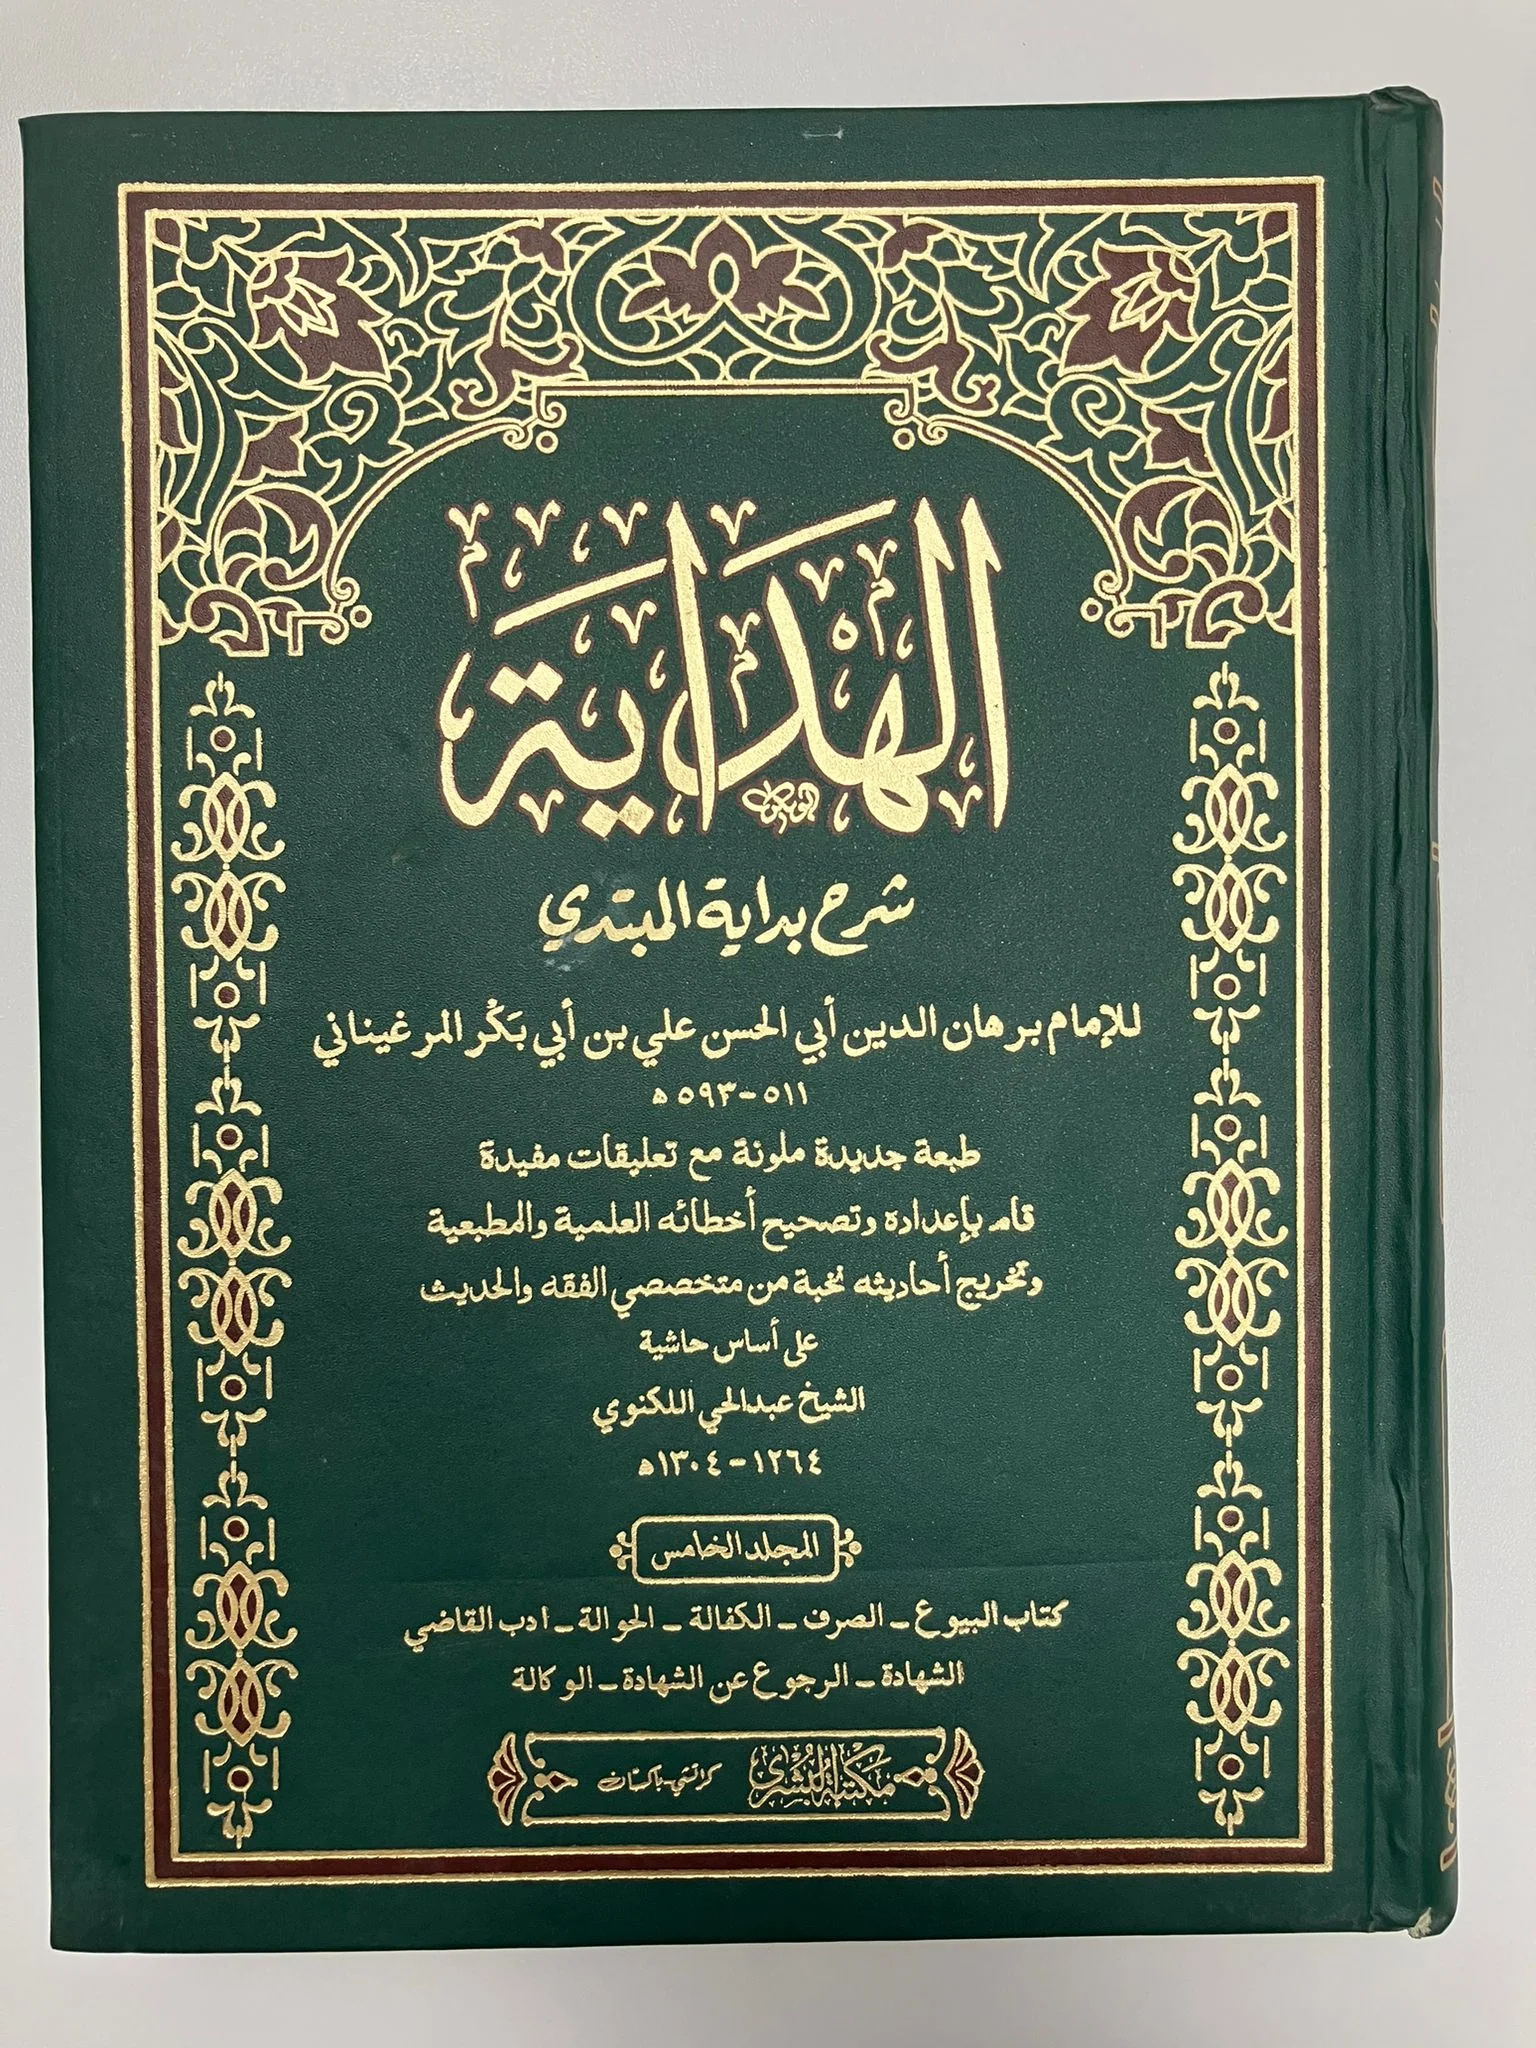 الهداية
شرح بداية المبتدي
للإمام برهان الدين أبي الحسن علي بن أبي بَكْر المرغيناني
٥١١-٥٩٣ ه
طبعة جديدة ملونة مع تعليقات مفيدة
قام بإعداده وتصحيح أخطائه العلمية والمطبعية
وتخريج أحاديثه نخبة من متخصصي الفقه والحديث
على أساس حاشية
الشيخ عبدالحي اللكنوي
١٢٦٤-١٣٠٤ه
المجلد الخامس
كتاب البيوع - الصرف - الكفالة - الحوالة - ادب القاضي
الشهادة - الرجوع عن الشهادة - الوكالة
مكتبة البشرى كراتشي-باكستان